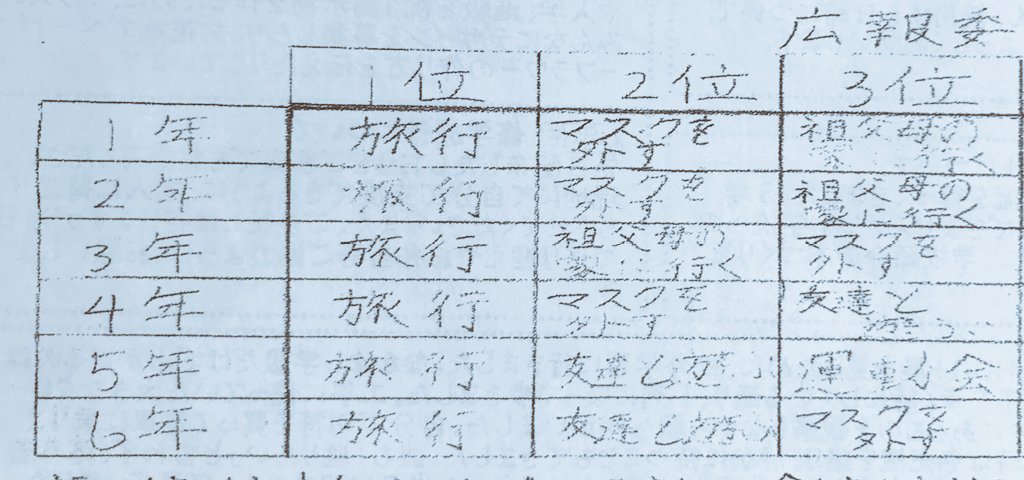 広報委
1位 2位 3位
1年 旅行 マスクを外す 祖父母の家 行く
2年 旅行 マスクを外す 祖父母の家に行く
3年 旅行 祖父母の家 行く マスクを外す
4年 旅行 マスクを外す 友達と
5年 旅行 友達と遊ぶ 運動会
6年 旅行 友達と遊ぶ マスクを外す